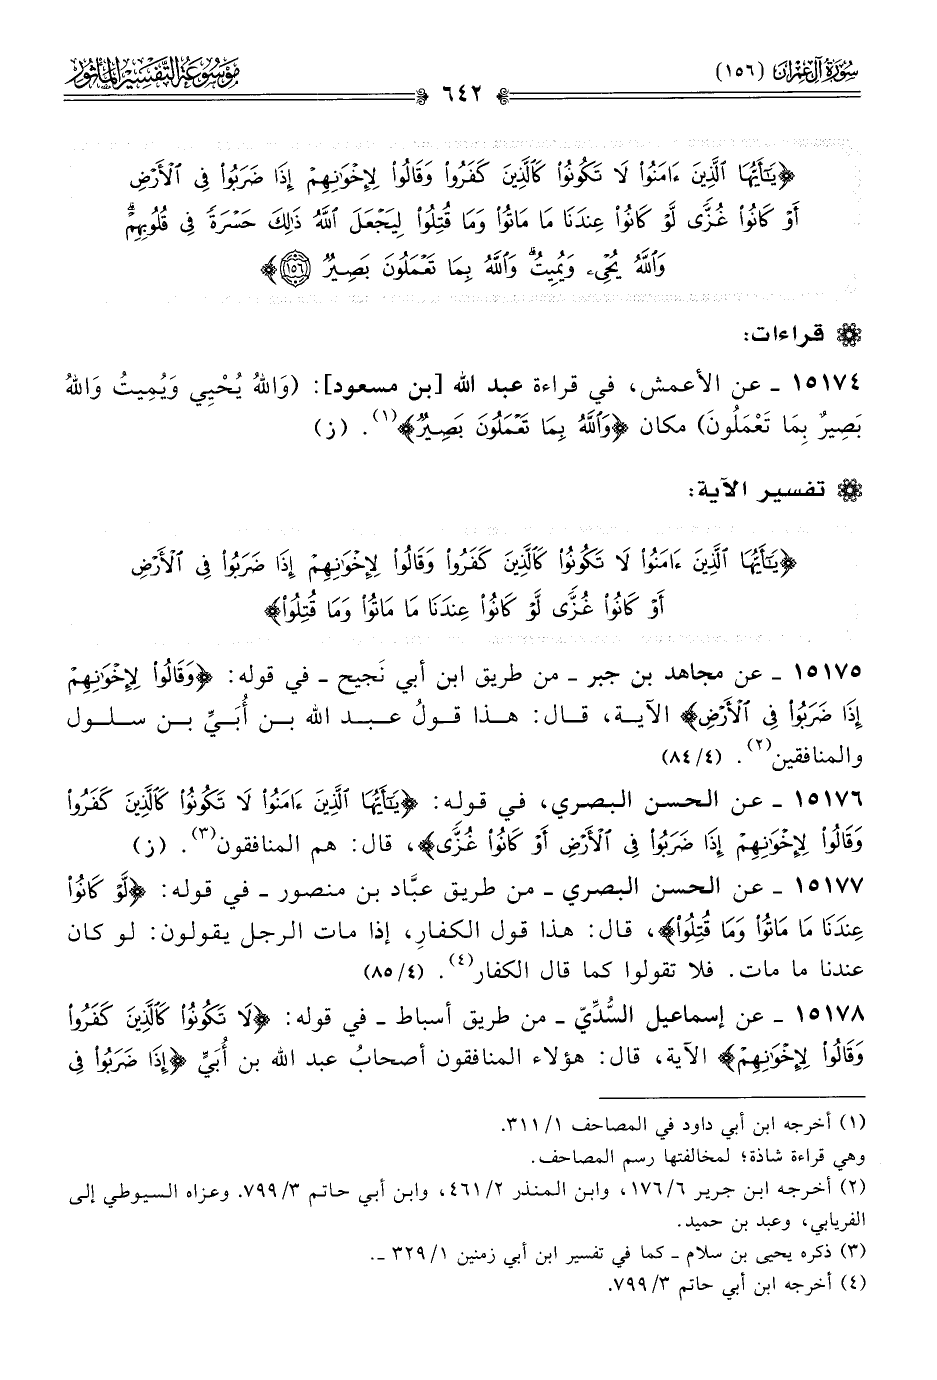 سورة آل عمران (١٥٦)
موسوعة التفسير المأثور
٦٤٢
﴿يَٰٓأَيُّهَا ٱلَّذِينَ ءَامَنُوا۟ لَا تَكُونُوا۟ كَٱلَّذِينَ كَفَرُوا۟ وَقَالُوا۟ لِإِخْوَٰنِهِمْ إِذَا ضَرَبُوا۟ فِى ٱلْأَرْضِ
أَوْ كَانُوا۟ غُزًّى لَّوْ كَانُوا۟ عِندَنَا مَا مَاتُوا۟ وَمَا قُتِلُوا۟ لِيَجْعَلَ ٱللَّهُ ذَٰلِكَ حَسْرَةً فِى قُلُوبِهِمْ ۗ
وَٱللَّهُ يُحْىِۦ وَيُمِيتُ ۗ وَٱللَّهُ بِمَا تَعْمَلُونَ بَصِيرٌ ١٥٦﴾
قراءات:
١٥١٧٤ ـ عن الأعمش، في قراءة عبد الله [بن مسعود]: (وَاللهُ يُحْيِي وَيُمِيتُ وَاللهُ
بَصِيرٌ بِمَا تَعْمَلُونَ) مكان ﴿وَٱللَّهُ بِمَا تَعْمَلُونَ بَصِيرٌ﴾(١). (ز)
تفسير الآية:
﴿يَٰٓأَيُّهَا ٱلَّذِينَ ءَامَنُوا۟ لَا تَكُونُوا۟ كَٱلَّذِينَ كَفَرُوا۟ وَقَالُوا۟ لِإِخْوَٰنِهِمْ إِذَا ضَرَبُوا۟ فِى ٱلْأَرْضِ
أَوْ كَانُوا۟ غُزًّى لَّوْ كَانُوا۟ عِندَنَا مَا مَاتُوا۟ وَمَا قُتِلُوا۟﴾
١٥١٧٥ ـ عن مجاهد بن جبر ـ من طريق ابن أبي نَجيح ـ في قوله: ﴿وَقَالُوا۟ لِإِخْوَٰنِهِمْ
إِذَا ضَرَبُوا۟ فِى ٱلْأَرْضِ﴾ الآية، قال: هذا قولُ عبد الله بن أُبَيِّ بن سلول
والمنافقين(٢). (٤/ ٨٤)
١٥١٧٦ ـ عن الحسن البصري، في قوله: ﴿يَٰٓأَيُّهَا ٱلَّذِينَ ءَامَنُوا۟ لَا تَكُونُوا۟ كَٱلَّذِينَ كَفَرُوا۟
وَقَالُوا۟ لِإِخْوَٰنِهِمْ إِذَا ضَرَبُوا۟ فِى ٱلْأَرْضِ أَوْ كَانُوا۟ غُزًّى﴾، قال: هم المنافقون(٣). (ز)
١٥١٧٧ ـ عن الحسن البصري ـ من طريق عبَّاد بن منصور ـ في قوله: ﴿لَّوْ كَانُوا۟
عِندَنَا مَا مَاتُوا۟ وَمَا قُتِلُوا۟﴾، قال: هذا قول الكفارِ، إذا مات الرجل يقولون: لو كان
عندنا ما مات. فلا تقولوا كما قال الكفار(٤). (٤/ ٨٥)
١٥١٧٨ ـ عن إسماعيل السُّدِّيِّ ـ من طريق أسباط ـ في قوله: ﴿لَا تَكُونُوا۟ كَٱلَّذِينَ كَفَرُوا۟
وَقَالُوا۟ لِإِخْوَٰنِهِمْ﴾ الآية، قال: هؤلاء المنافقون أصحابُ عبد الله بن أُبَيٍّ ﴿إِذَا ضَرَبُوا۟ فِى
(١) أخرجه ابن أبي داود في المصاحف ١/ ٣١١.
وهي قراءة شاذة؛ لمخالفتها رسم المصاحف.
(٢) أخرجه ابن جرير ٦/ ١٧٦، وابن المنذر ٢/ ٤٦١، وابن أبي حاتم ٣/ ٧٩٩. وعزاه السيوطي إلى
الفريابي، وعبد بن حميد.
(٣) ذكره يحيى بن سلام ـ كما في تفسير ابن أبي زمنين ١/ ٣٢٩ ـ.
(٤) أخرجه ابن أبي حاتم ٣/ ٧٩٩.